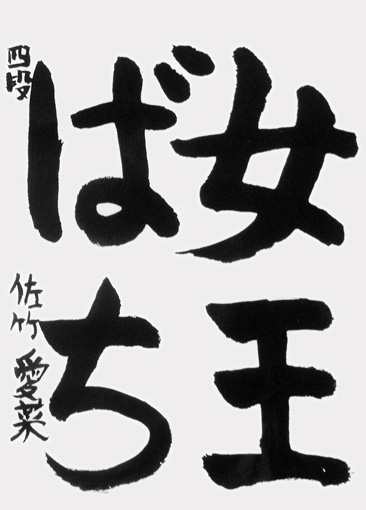 女王
ばち
四段
佐竹愛菜